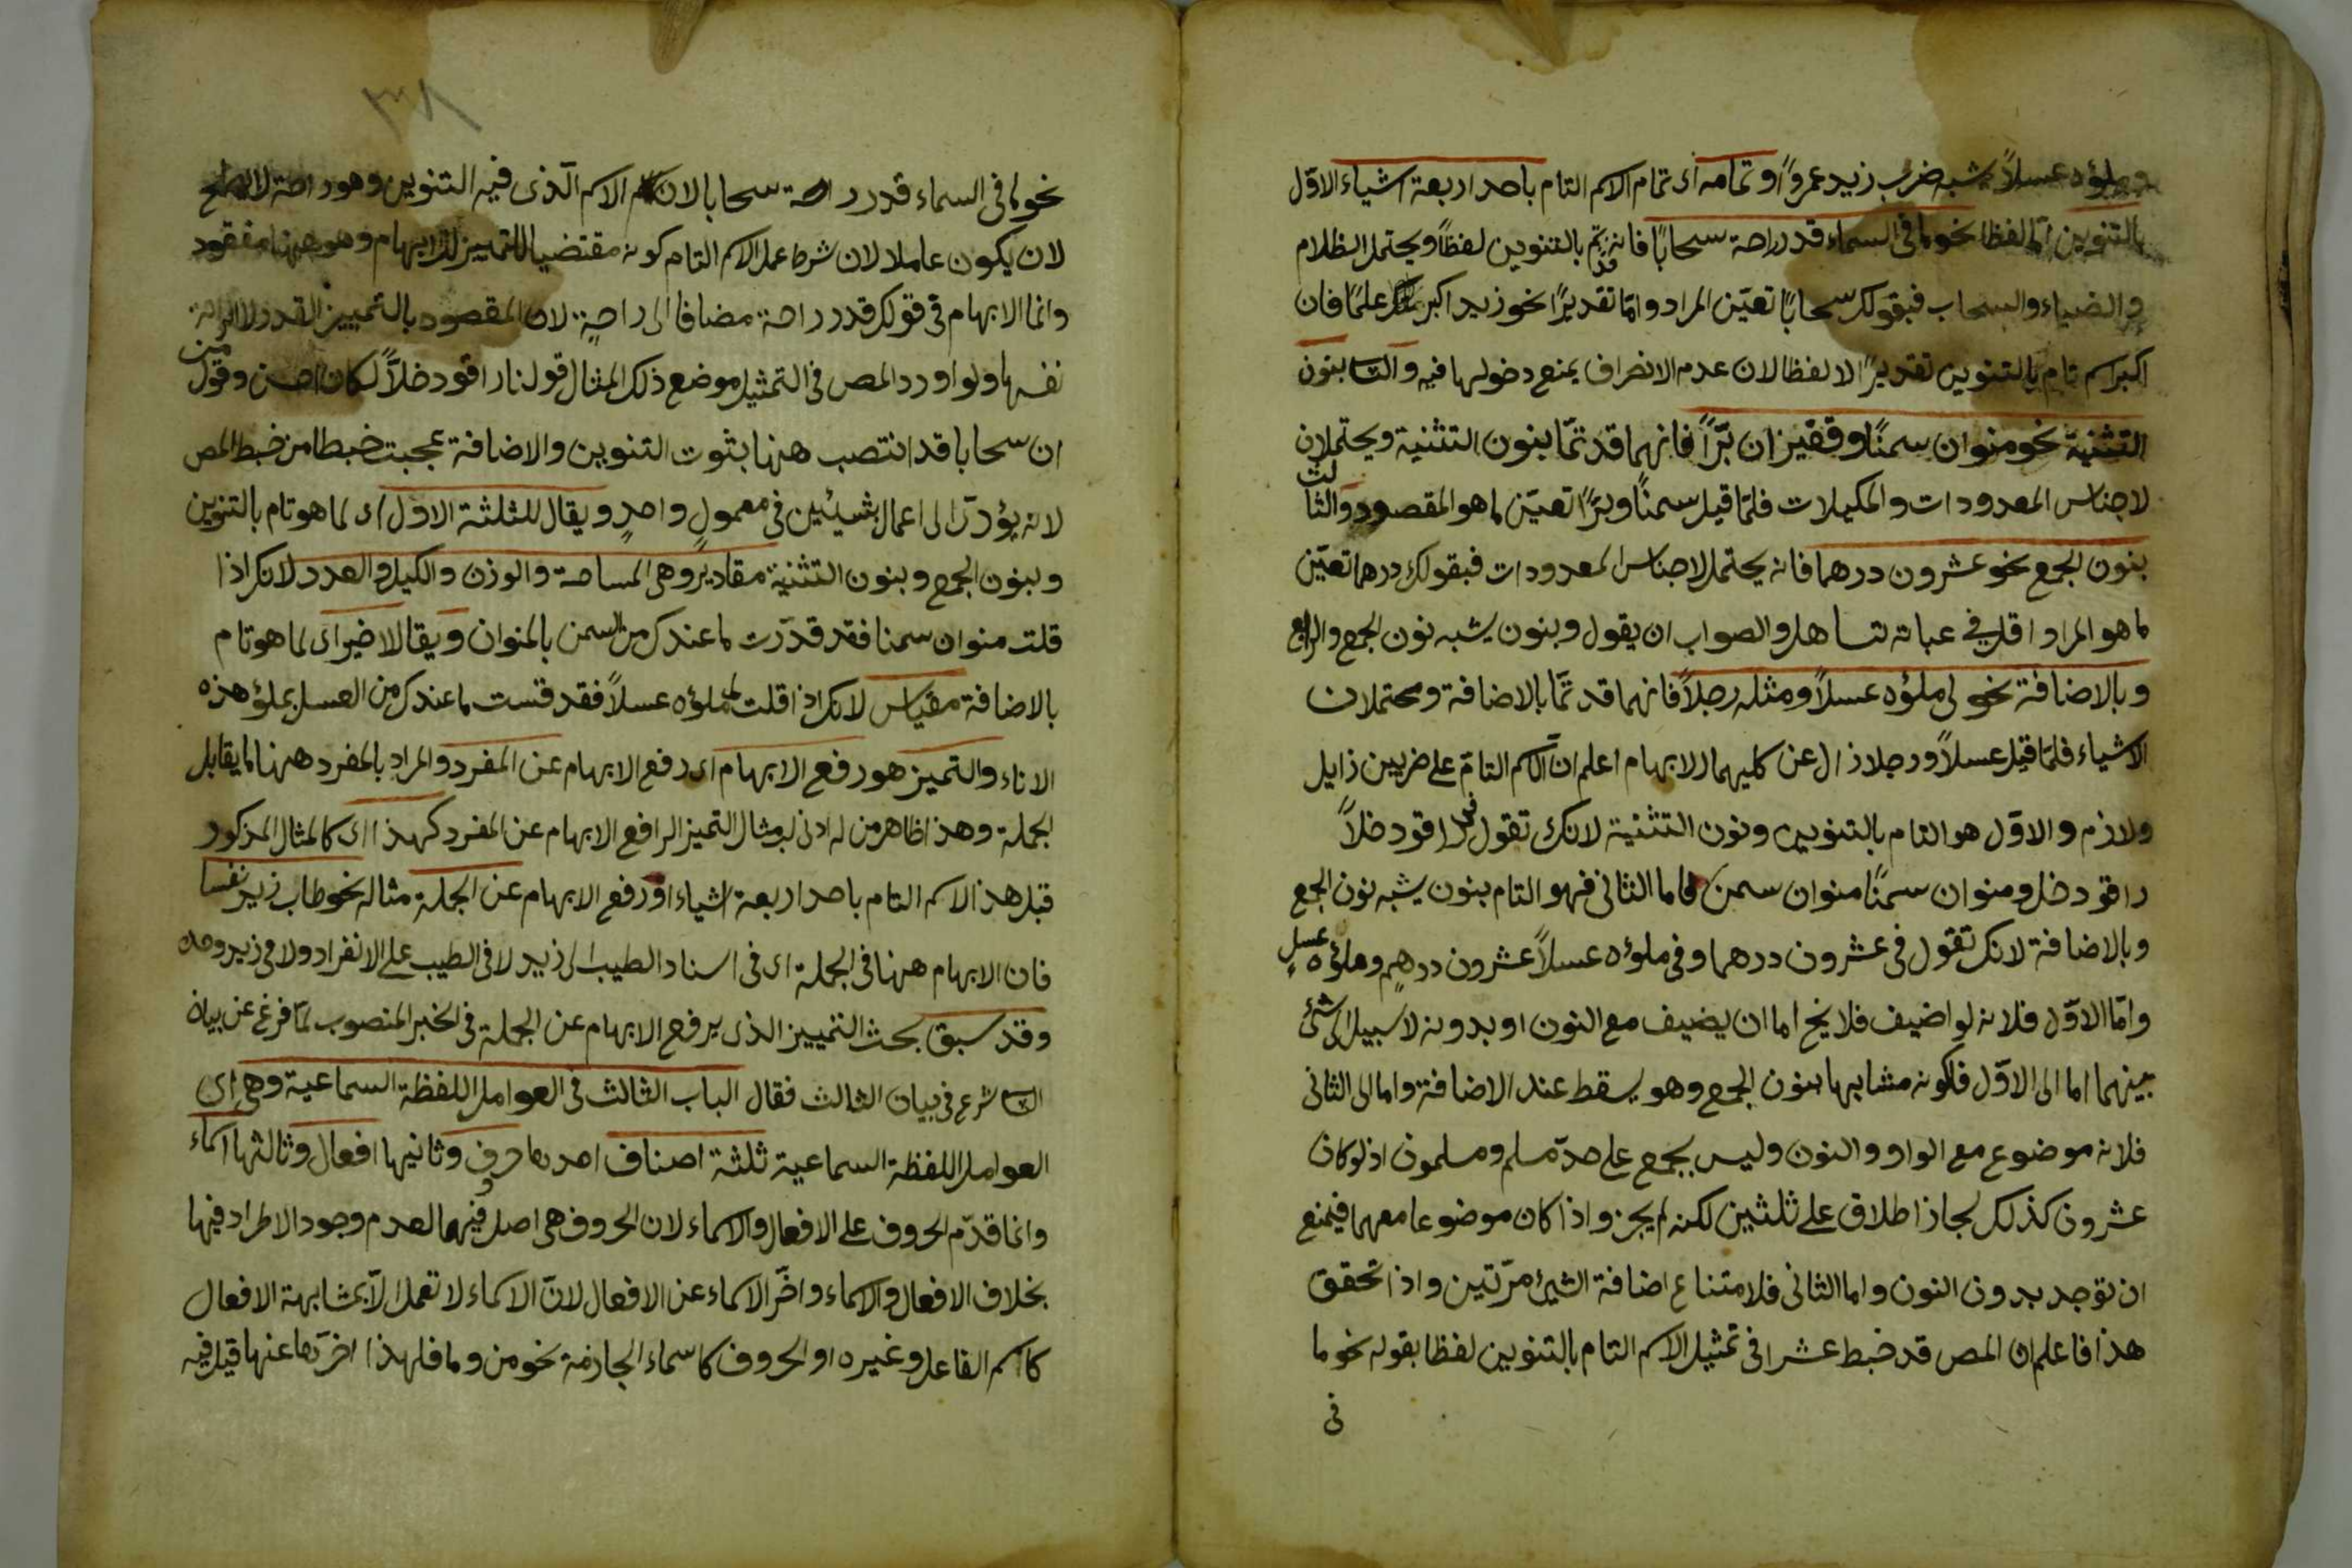 وملؤه عسلاً يشبه ضرب زيد عمرواً وتمامه اى تمام الاسم التام باحد اربعة اشياء الاوّل
بالتنوين امّا لفظا نحو ما فى السماء قدر راحة سحابًا فانه قد تم بالتنوين لفظاً ويحتمل الظلام
والضياء والسحاب فبقولك سحابًا تعيّن المراد وامّا تقديرًا نحو زيد اكبر منك علمًا فان
اكبر اسم تام بالتنوين تقديرًا لا لفظا لان عدم الانصراف يمنع دخولها فيه والثانى بنون
التثنية نحو منوان سمنًا وقفيزان برّاً فانهما قد تمّا بنون التثنية ويحتملان
لاجناس المعدودات والمكيلات فلمّا قيل سمنًا وبرًّا تعيّن ما هو المقصود والثالث
بنون الجمع نحو عشرون درهما فانه يحتمل لاجناس المعدودات فبقولك درهما تعيّن
ما هو المراد اقول فى عبارته تساهل والصواب ان يقول وبنون يشبه نون الجمع والرابع
وبالاضافة نحو لى ملؤه عسلاً ومثله رجلاً فانهما قد تمّا بالاضافة ومحتملان
الاشياء فلمّا قيل عسلاً ورجلا زال عن كليهما الابهام اعلم انّ الاسم التامّ على ضربين زايل
ولازم والاوّل هو التام بالتنوين ونون التثنية لانك تقول فى راقود خلاًّ
راقود خل ومنوان سمنًا منوان سمن فاما الثانى فهو التام بنون يشبه نون الجمع
وبالاضافة لانك تقول فى عشرون درهما وفى ملؤه عسلاً عشرون درهمٍ وملؤه عسلٍ
وامّا الاوّل فلانه لو اضيف فلا يخ اما ان يضيف مع النون او بدونه لا سبيل الى شئ
بينهما اما الى الاوّل فلكونه مشابها بنون الجمع وهو يسقط عند الاضافة واما الى الثانى
فلانه موضوع مع الواو والنون وليس بجمع على حدّ مسلم ومسلمون اذ لو كان
عشرون كذلك لجاز اطلاق على ثلثين لكنه لم يجز واذا كان موضوعا معهما فيمنع
ان توجد بدون النون واما الثانى فلامتناع اضافة الشئ مرّتين واذا تحقق
هذا فاعلم ان المص قد خبط عشرا فى تمثيل الاسم التام بالتنوين لفظا بقوله نحو ما
فى
٣٨
نحو ما فى السماء قدر راحة سحابا لان الاسم الّذى فيه التنوين وهو راحة لا يصلح
لان يكون عاملا لان شرط عمل الاسم التام كونه مقتضيا للتمييز للابهام وهو ههنا مفقود
وانما الابهام فى قولك قدر راحة مضافا الى راحةٍ لان المقصود بالتمييز القدر لا الراحة
نفسها ولو اورد المص فى التمثيل موضع ذلك المثال قولنا راقود خلاًّ لكان احسن وقول من
ان سحابا قد انتصب ههنا بثبوت التنوين والاضافة عجبت خبطا من خبط المص
لانه يؤدّى الى اعمال شيئين فى معمولٍ واحدٍ ويقال للثلثة الاول اى لما هو تام بالتنوين
وبنون الجمع وبنون التثنية مقادير وهى المساحة والوزن والكيل والعدد لانك اذا
قلت منوان سمنا فقد قدّرت ما عندك من السمن بالمنوان ويقال للاخير اى لما هو تام
بالاضافة مقياس لانك اذا قلت ملؤه عسلاً فقد قست ما عندك من العسل بملؤ هذه
الاناء والتميز هو رفع الابهام اى رفع الابهام عن المفرد والمراد بالمفرد ههنا ما يقابل
الجملة وهذا ظاهر من له ادنى لب مثال التميز الرافع الابهام عن المفرد كهذا اى كالمثال المذكور
قبل هذا الاسم التام باحد اربعة اشياء او رفع الابهام عن الجملة مثاله نحو طاب زيد نفسا
فان الابهام ههنا فى الجملة اى فى اسناد الطيب الى زيد لا فى الطيب على الانفراد ولا فى زيد وحده
وقد سبق بحث التمييز الذى يرفع الابهام عن الجملة فى الخبر المنصوب لمّا فرغ عن بيان
الثانى شرع فى بيان الثالث فقال الباب الثالث فى العوامل اللفظة السماعية وهى اى
العوامل اللفظة السماعية ثلثة اصناف احدها حرف وثانيها افعال وثالثها اسماء
وانما قدّم الحروف على الافعال والاسماء لان الحروف هى اصل فيهما لعدم وجود الاطراد فيها
بخلاف الافعال والاسماء واخّر الاسماء عن الافعال لانّ الاسماء لا تعمل الّا بمشابهة الافعال
كاسم الفاعل وغيره او الحروف كاسماء الجازمة نحو من وما فلهذا اخرّها عنها قيل فيه